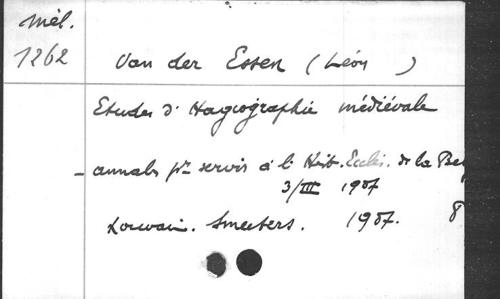 Mél.
1262
Van der Essen (Léon )
Etudes d'Hagiographie médiévale
– annales pr servir à l'Hist. Ecclés. de la Belg
3/III 1907
Louvain. Smeesters. 1907. 8